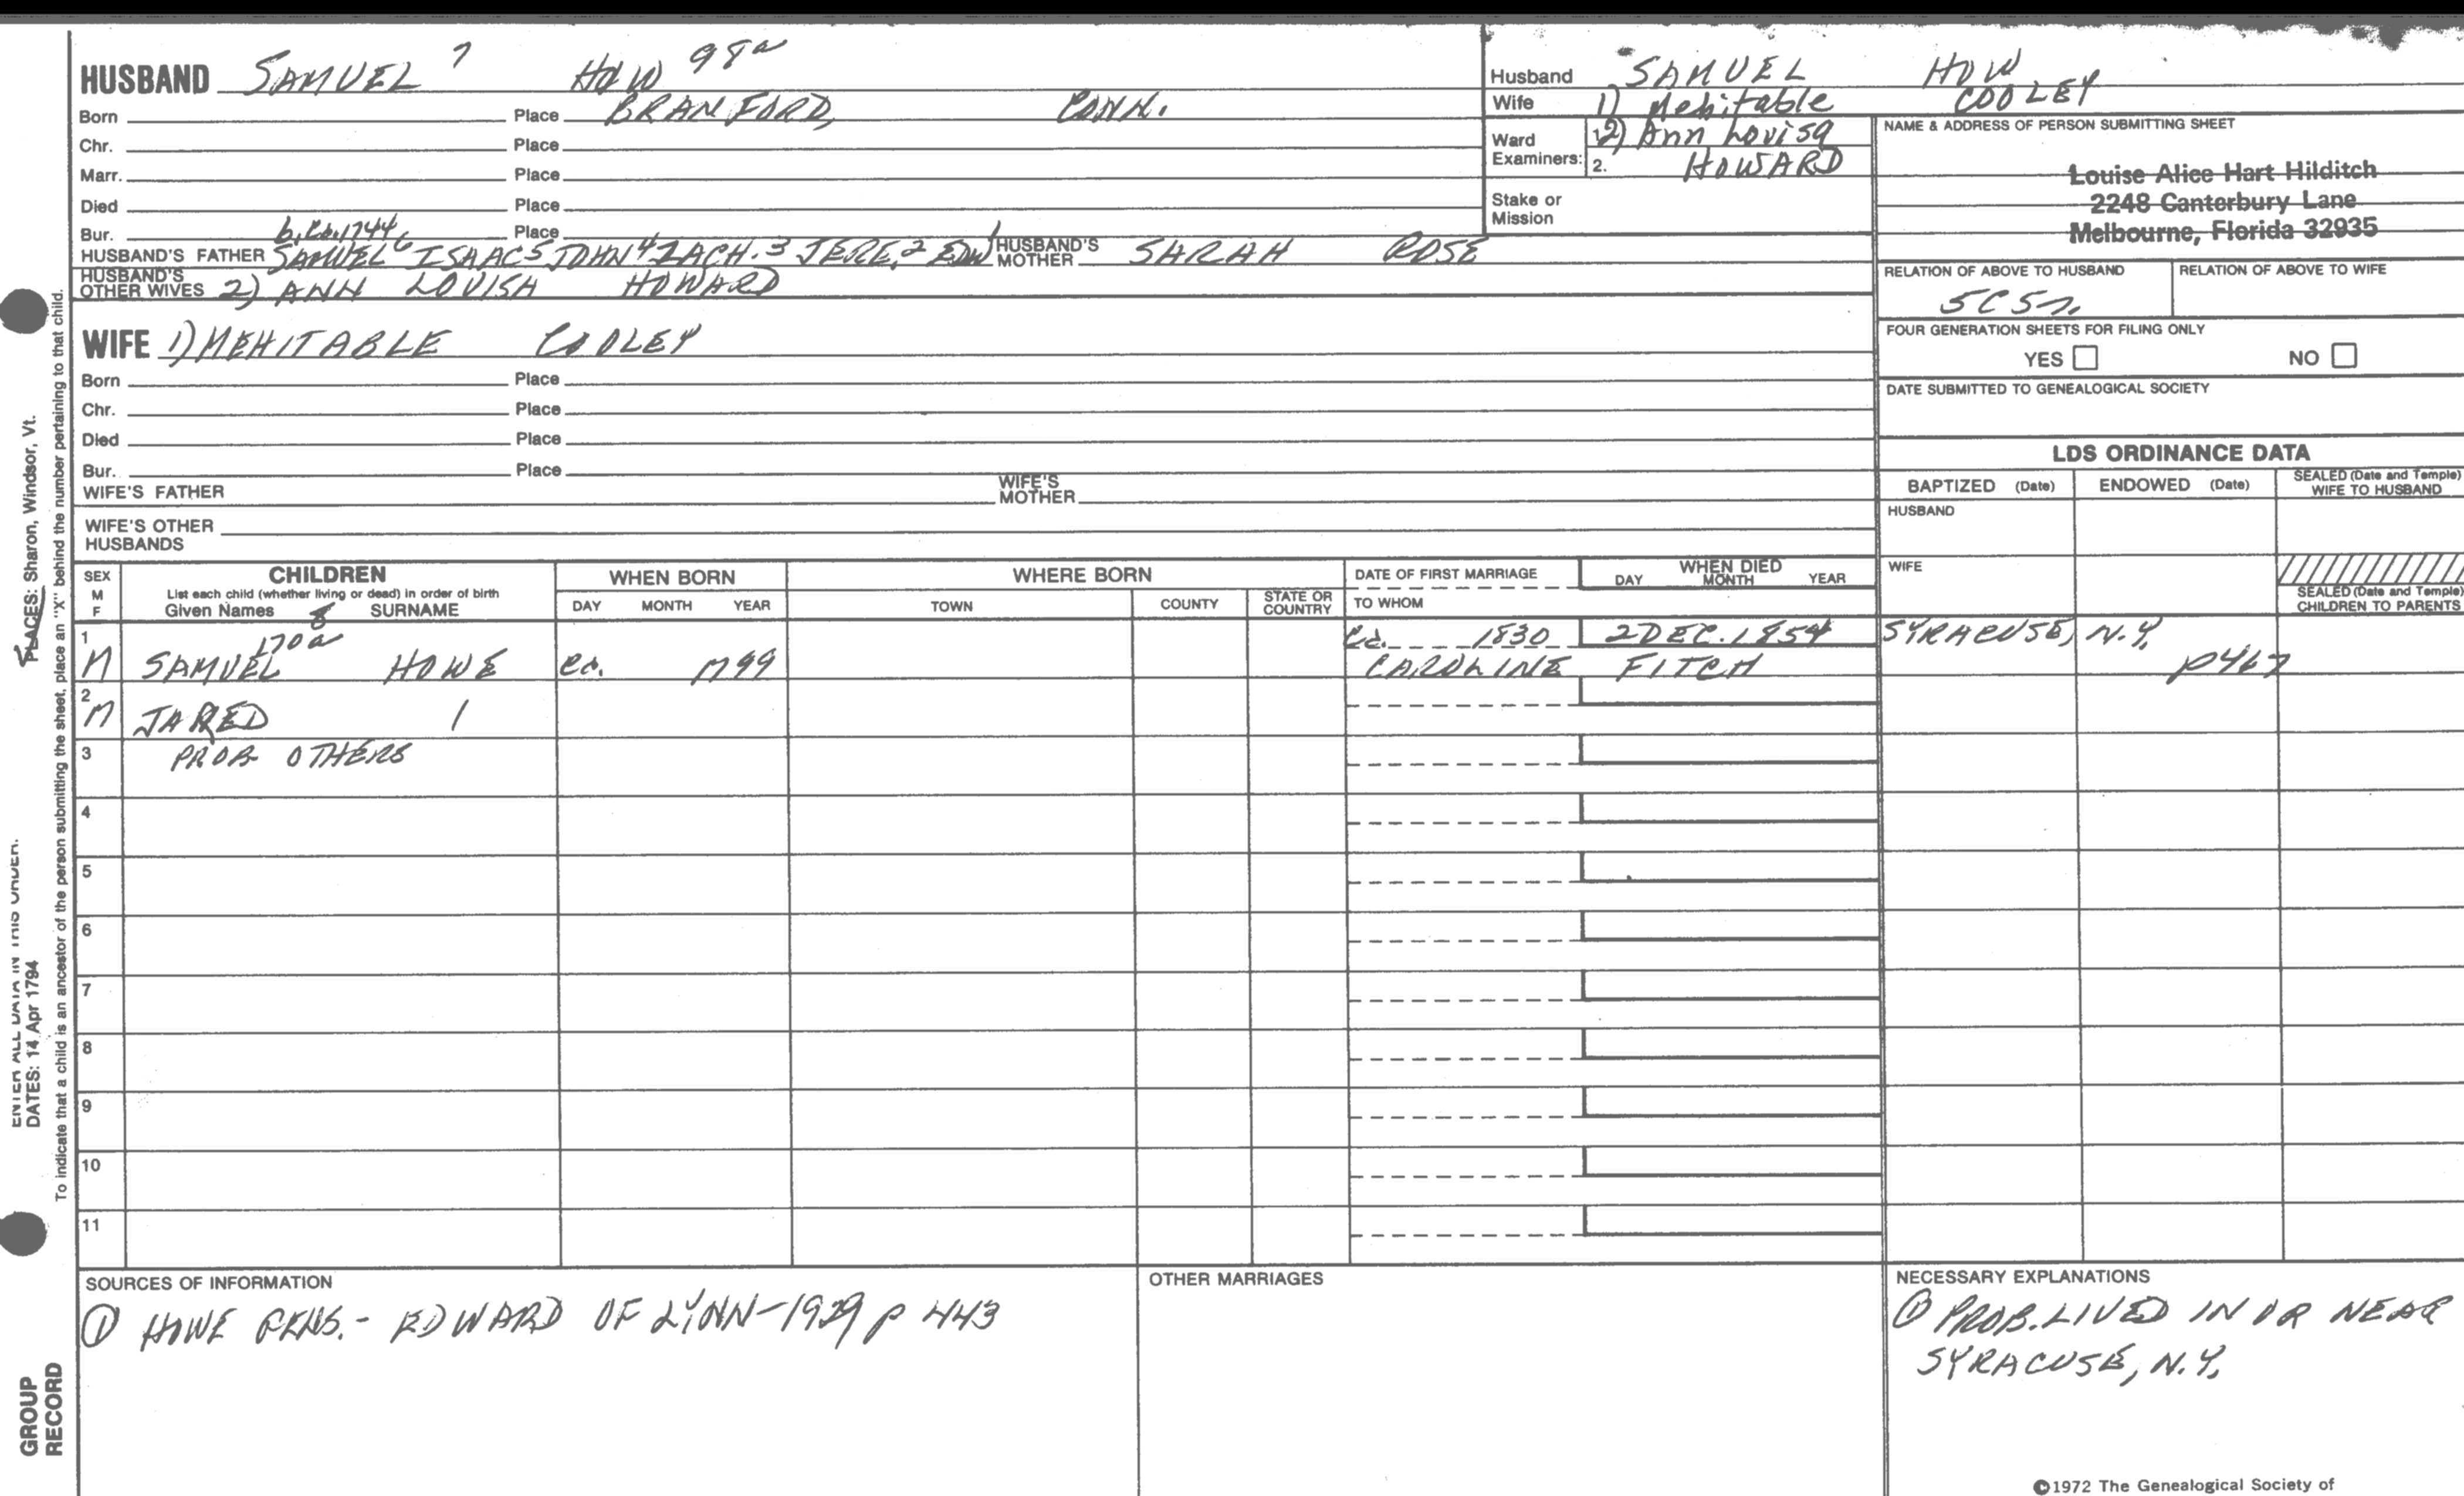 HUSBAND SAMUEL 7 HOW 98a
Born Place BRANFORD, CONN.
Chr. Place
Marr. Place
Died Place
Bur. Place
b. ca. 1744
HUSBAND'S FATHER SAMUEL 6 ISAAC 5 JOHN 4 ZACH. 3 JERE. 2 EDW 1 HUSBAND'S MOTHER SARAH ROSE
HUSBAND'S OTHER WIVES 2) ANN LOUISA HOWARD
WIFE 1) MEHITABLE COOLEY
Born Place
Chr. Place
Died Place
Bur. Place
WIFE'S FATHER WIFE'S MOTHER
WIFE'S OTHER HUSBANDS
Husband SAMUEL HOW
Wife 1) Mehitable COOLEY
Ward Examiners: 1. 2) Ann Louisa
2. HOWARD
Stake or Mission
NAME & ADDRESS OF PERSON SUBMITTING SHEET
Louise Alice Hart Hilditch
2248 Canterbury Lane
Melbourne, Florida 32935
RELATION OF ABOVE TO HUSBAND RELATION OF ABOVE TO WIFE
5C5r.
FOUR GENERATION SHEETS FOR FILING ONLY
YES NO
DATE SUBMITTED TO GENEALOGICAL SOCIETY
LDS ORDINANCE DATA
BAPTIZED (Date) ENDOWED (Date) SEALED (Date and Temple) WIFE TO HUSBAND
HUSBAND
WIFE
SEALED (Date and Temple) CHILDREN TO PARENTS
SEX M F
CHILDREN
List each child (whether living or dead) in order of birth
Given Names SURNAME
WHEN BORN
DAY MONTH YEAR
WHERE BORN
TOWN COUNTY STATE OR COUNTRY
DATE OF FIRST MARRIAGE
TO WHOM
WHEN DIED
DAY MONTH YEAR
1 8 170a ca. 1830 2 DEC. 1854 SYRACUSE, N.Y.
M SAMUEL HOWE ca. 1799 CAROLINE FITCH p467
2
M JARED /
3 PROB OTHERS
4
5
6
7
8
9
10
11
SOURCES OF INFORMATION
① HOWE GENS. - EDWARD OF LYNN - 1929 p 443
OTHER MARRIAGES
NECESSARY EXPLANATIONS
① PROB. LIVED IN OR NEAR
SYRACUSE, N.Y.
©1972 The Genealogical Society of
PLACES: Sharon, Windsor, Vt.
To indicate that a child is an ancestor of the person submitting the sheet, place an "X" behind the number pertaining to that child.
ENTER ALL DATA IN THIS ORDER:
DATES: 14 Apr 1794
GROUP
RECORD